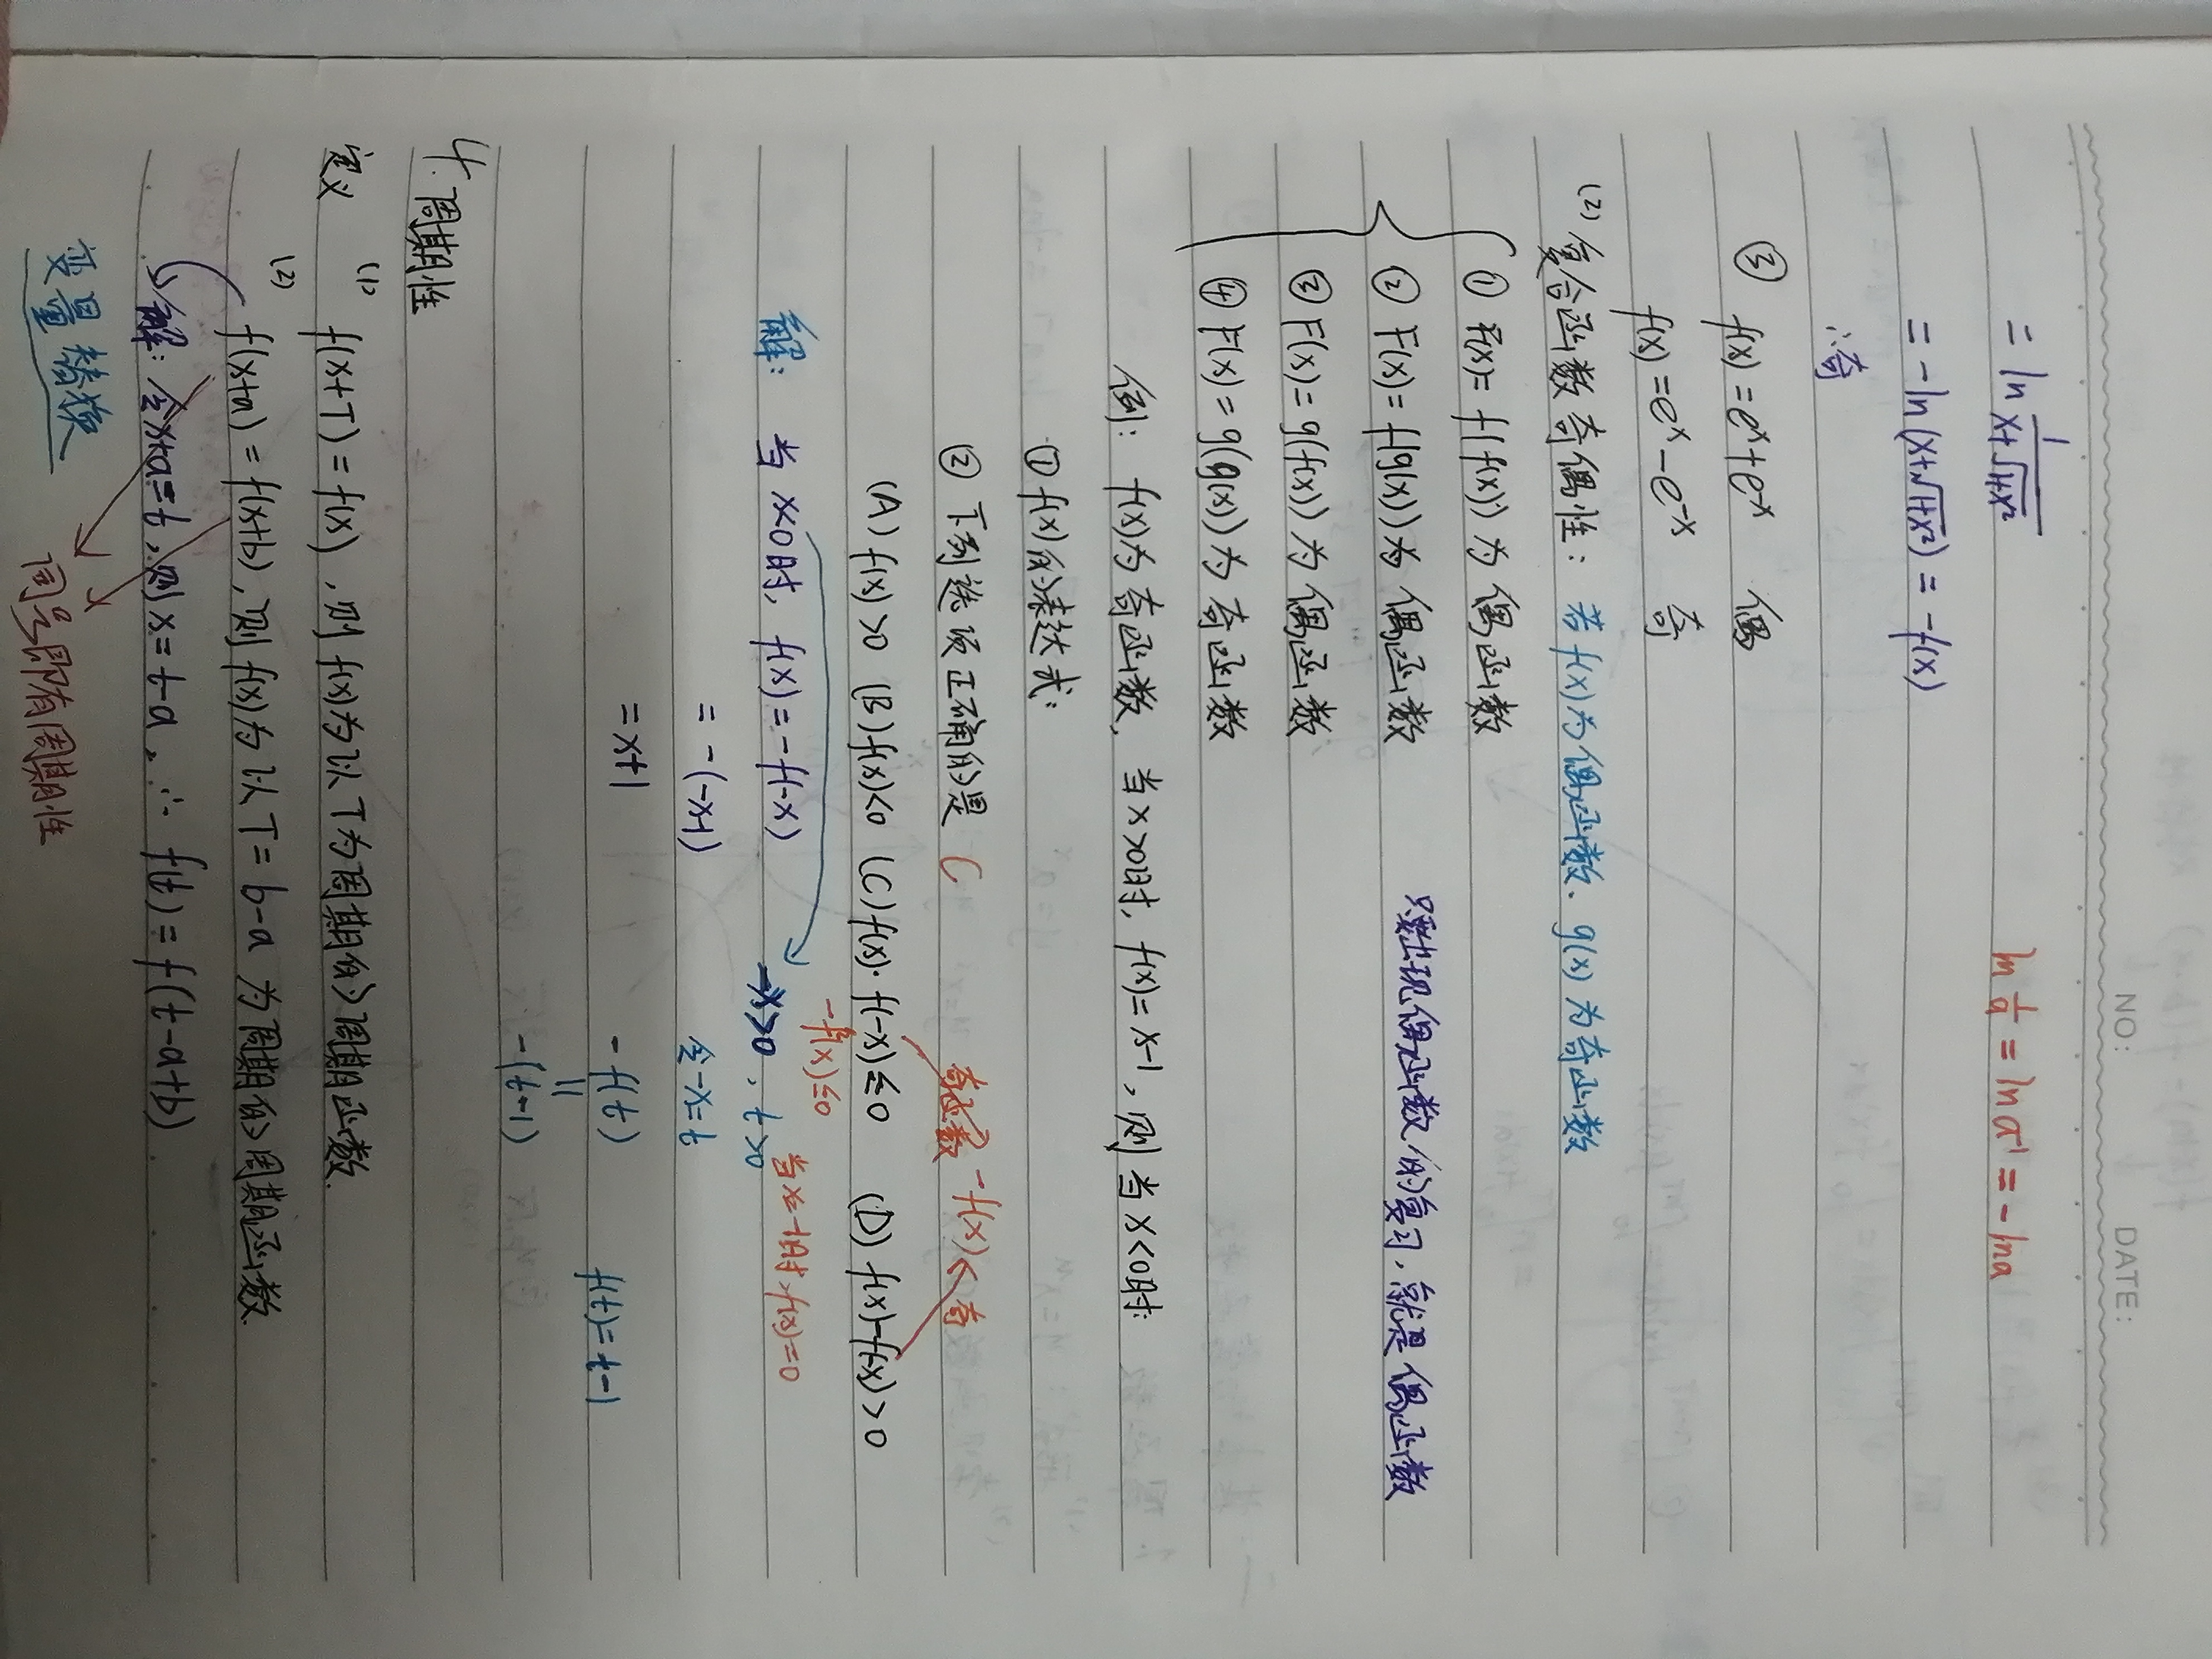 NO: DATE:
= ln 1/(x+√(1+x²)) ln 1/a = ln a⁻¹ = -ln a
= -ln(x+√(1+x²)) = -f(x)
∴奇
③ f(x) = eˣ+e⁻ˣ 偶
f(x) = eˣ-e⁻ˣ 奇
(2) 复合函数奇偶性: 若f(x)为偶函数. g(x)为奇函数
① F(x) = f(f(x)) 为偶函数
② F(x) = f(g(x)) 为偶函数 只要出现偶函数的复习,就是偶函数
③ F(x) = g(f(x)) 为偶函数
④ F(x) = g(g(x)) 为奇函数
例: f(x)为奇函数, 当x>0时, f(x)=x-1, 则当x<0时:
① f(x)的表达式:
② 下列选项正确的是 C 奇函数 -f(x)<奇
(A) f(x)>0 (B) f(x)<0 (C) f(x)·f(-x)≤0 (D) f(x)-f(-x)>0
-f²(x)≤0
解: 当x<0时, f(x)=-f(-x) -x>0, t<0 当x=-1时,f(x)=0
= -(-x-1) 令-x=t
= x+1 -f(t) f(t)=t-1
||
-(t-1)
4. 周期性
定义 (1) f(x+T) = f(x), 则f(x)为以T为周期的周期函数.
(2) f(x+a) = f(x+b), 则f(x)为以T=b-a为周期的周期函数
解: 令x+a=t, 则x=t-a, ∴ f(t)=f(t-a+b)
变量替换 同号即有周期性